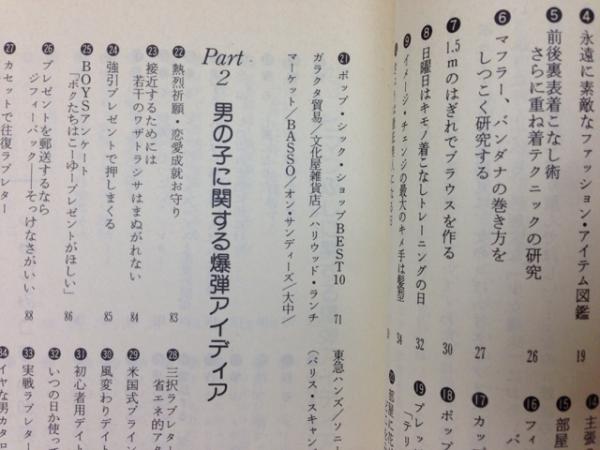 ❹ 永遠に素敵なファッション・アイテム図鑑 19
❺ 前後裏表着こなし術
さらに重ね着テクニックの研究 26
❻ マフラー、バンダナの巻き方を
しつこく研究する 27
❼ 1.5mのはぎれでブラウスを作る 30
❽ 日曜日はキモノ着こなしトレーニングの日 32
❾ イメージ・チェンジの最大のキメ手は髪型 34
⓮ 主張
⓯ 部屋
⓰ フィ
パ
⓱ カッ
⓲ ポップ
⓳ ブレッ
「テリ
⓴ 部屋に花
㉑ ポップ・シック・ショップBEST10 71
ガラクタ貿易/文化屋雑貨店/ハリウッド・ランチ
マーケット/BASSO/オン・サンディーズ/大中/
東急ハンズ/ソニー
(パリス・スキャン
Part 2 男の子に関する爆弾アイディア
㉒ 熱烈祈願・恋愛成就お守り 83
㉓ 接近するためには
若干のワザトラシサはまぬがれない 84
㉔ 強引プレゼントで押しまくる 85
㉕ BOYSアンケート
「ボクたちはこーゆープレゼントがほしい」 86
㉖ プレゼントを郵送するなら
ジフィーバック——そっけなさがいい 88
㉗ カセットで往復ラブレター
㉘ 三択ラブレター
省エネ的アタ
㉙ 米国式ブライン
㉚ 風変わりデイト
㉛ 初心者用デイト
㉜ いつの日か使っ
㉝ 実戦ラブレター
㉞ イヤな男カタロ